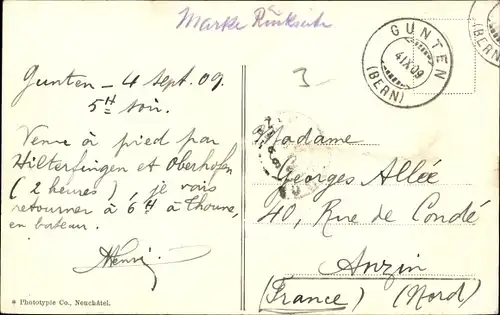 Marke Rückseite
GUNTEN
4 IX 09
(BERN)
Gunten - 4 Sept. 09.
5H soir.
Venu à pied par
Hilterfingen et Oberhofen
(2 heures), je vais
retourner à 6H à Thoune,
en bateau.
Henri.
3
Madame
Georges Allée
40, Rue de Condé
Anzin
(France) (Nord)
* Phototypie Co., Neuchâtel.